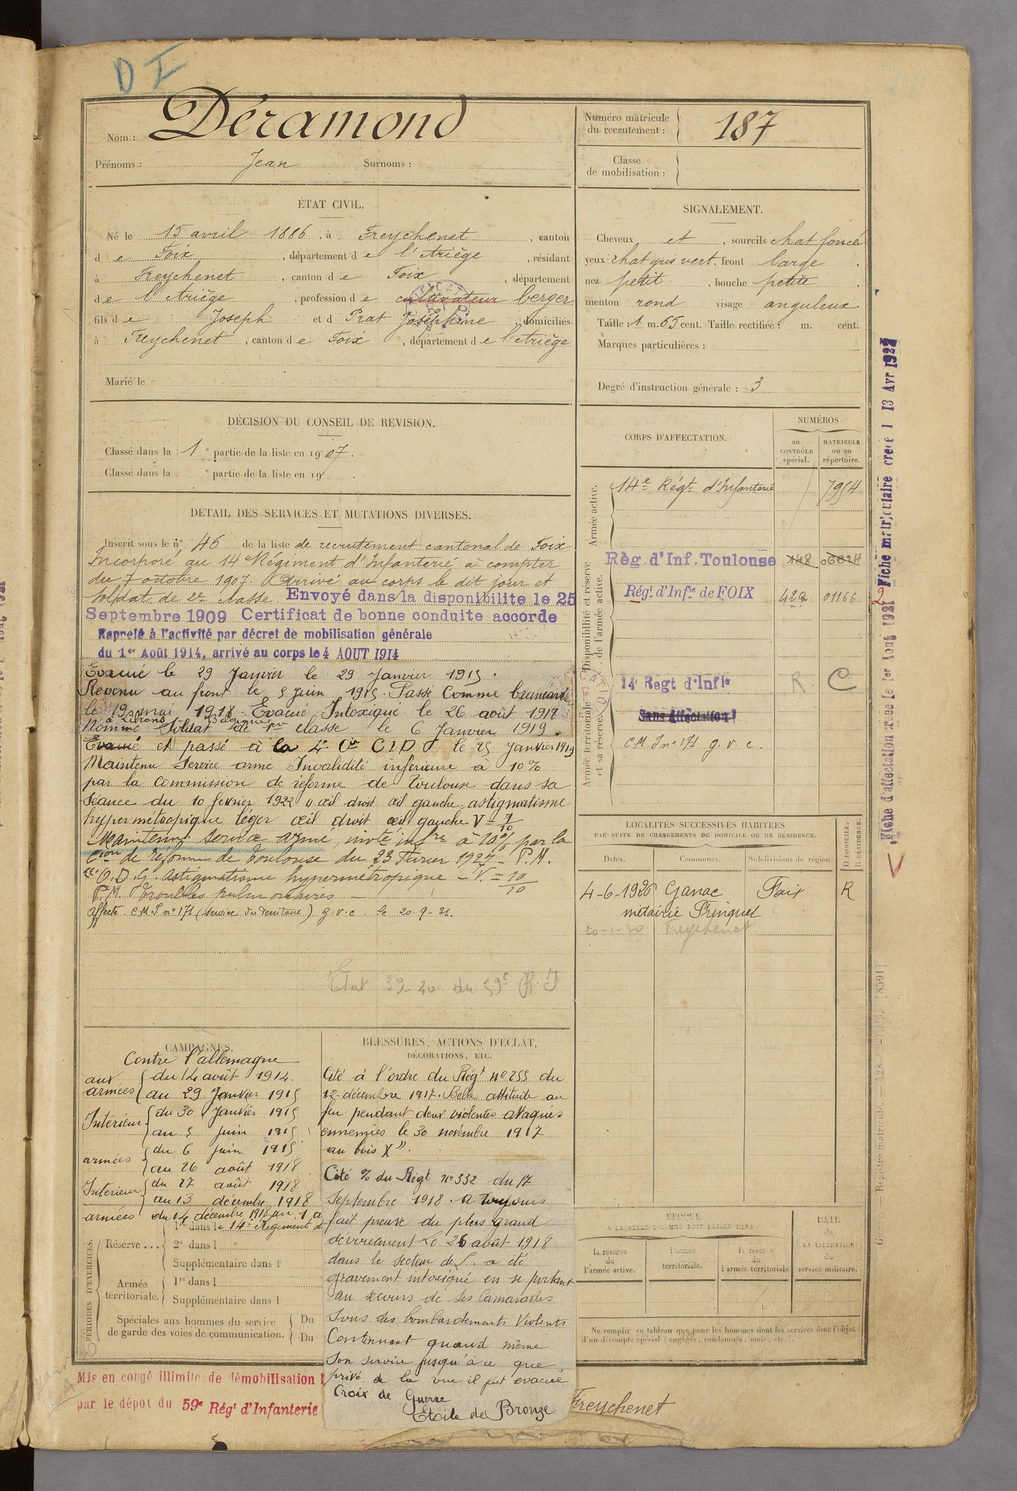 D I
Nom : Déramond
Prénoms : Jean Surnoms :
Numéro matricule
du recrutement : 187
Classe
de mobilisation :
ÉTAT CIVIL.
Né le 15 avril 1886, à Freychenet, canton
de Foix, département de l'Ariège, résidant
à Freychenet, canton de Foix, département
de l'Ariège, profession de cultivateur berger
fils de Joseph et d Prat Joséphine, domiciliés
à Freychenet, canton de Foix, département de l'Ariège
Marié le
SIGNALEMENT.
Cheveux et, sourcils chat foncé
yeux chat gris vert, front large
nez petit, bouche petite
menton rond visage anguleux
Taille : 1 m. 65 cent. Taille rectifiée : m. cent.
Marques particulières :
Degré d'instruction générale : 3
DÉCISION DU CONSEIL DE REVISION.
Classé dans la 1e partie de la liste en 1907.
Classé dans la e partie de la liste en 19
DÉTAIL DES SERVICES ET MUTATIONS DIVERSES.
Inscrit sous le n° 46 de la liste de recrutement cantonal de Foix
Incorporé au 14e Régiment d'Infanterie à compter
du 7 octobre 1907. Arrivé au corps le dit jour et
soldat de 2e classe. Envoyé dans la disponibilite le 25
Septembre 1909 Certificat de bonne conduite accorde
Rappelé à l'activité par décret de mobilisation générale
du 1er Août 1914, arrivé au corps le 4 AOUT 1914
Evacué le 29 Janvier le 29 Janvier 1915.
Revenu au front le 5 juin 1915. Passé Comme brancardier
le 19 mai 1918. Evacué Intoxiqué le 26 août 1918
Nommé Soldat de 1re classe le 6 Janvier 1919.
Evacué et passé à la 4e Cie C.I.D le 25 Janvier 1919
Maintenu Service armé Invalidité inférieure à 10%
par la Commission de réforme de Toulouse dans sa
séance du 10 février 1922 œil droit œil gauche, astigmatisme
hypermétropique léger œil droit œil gauche V = 7/10
Maintenu service armé invté infre à 10% par la
Cion de réforme de Toulouse du 23 Février 1927. P.M.
"O.D.G. astigmatisme hypermétropique – V. = 10/10
P.M. Troubles pulmonaires –
Affecté CM I n° 171 (service du territoire) g.v.c le 20.9.31.
Etat 39-20 du 59e R.I
CORPS D'AFFECTATION.
NUMÉROS
au
CONTRÔLE
spécial.
MATRICULE
ou au
répertoire.
Armée active.
14e Régt d'Infanterie 7954
Disponibilité et réserve
de l'armée active.
Règ. d'Inf. Toulouse 148 06024
Régt d'Infie de FOIX 422 01166
Armée territoriale
et sa réserve.
14 Regt d'Infie R C
Sans Affectation
CM I n° 171 g.v.c.
LOCALITÉS SUCCESSIVES HABITÉES
PAR SUITE DE CHANGEMENTS DE DOMICILE OU DE RÉSIDENCE.
Dates. Communes. Subdivisions de région. D. DOMICILE. R. RÉSIDENCE.
4-6-1926 Ganac Foix R
métairie Fringuet
Freychenet
CAMPAGNES.
Contre l'allemagne
aux armées du 14 août 1914.
au 29 Janvier 1915
Intérieur du 30 Janvier 1915
au 5 juin 1915
armées du 6 juin 1915
au 26 août 1918
Intérieur du 27 août 1918
au 13 décembre 1918
armées du 14 décembre 1918 au
PÉRIODES D'EXERCICES.
1re dans le 14e Régiment d
Réserve ... 2e dans l
Supplémentaire dans l
Armée
territoriale. 1re dans l
Supplémentaire dans l
Spéciales aux hommes du service
de garde des voies de communication. Du
Du
BLESSURES, ACTIONS D'ÉCLAT,
DÉCORATIONS, ETC.
Cité à l'ordre du Régt n° 255 du
12 décembre 1917. Belle attitude au
feu pendant deux violentes attaques
ennemies le 30 novembre 1917
au bois X".
Cité % du Régt n° 332 du 17
Septembre 1918. A toujours
fait preuve du plus grand
devouement Le 26 août 1918
dans le secteur de L. a été
gravement intoxiqué en se portant
au secours de ses Camarades
sous des bombardements Violents
Continuant quand même
son service jusqu'à ce que
privé de la vue il fut évacué
Croix de Guerre
Etoile de Bronze
ÉPOQUE
À LAQUELLE L'HOMME DOIT PASSER DANS
la réserve
de
l'armée active.
l'armée
territoriale.
la réserve
de
l'armée territoriale
DATE
de
LA LIBÉRATION
du
service militaire.
Ne remplir ce tableau que pour les hommes dont les services font l'objet
d'un décompte spécial (engagés, condamnés, omis, etc.).
Mis en congé illimité de démobilisation
par le dépot du 59e Régt d'Infanterie
Freychenet
Fiche matriculaire créée l 13 Avr 1922
Fiche d'affectation créée le 1er Août 1921